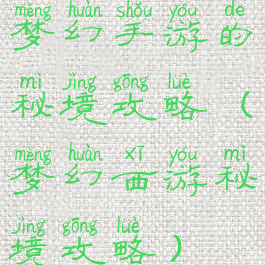 mèng huàn shǒu yóu de
梦幻手游的
mì jìng gōng lüè
秘境攻略（
mèng huàn xī yóu mì
梦幻西游秘
jìng gōng lüè
境攻略）